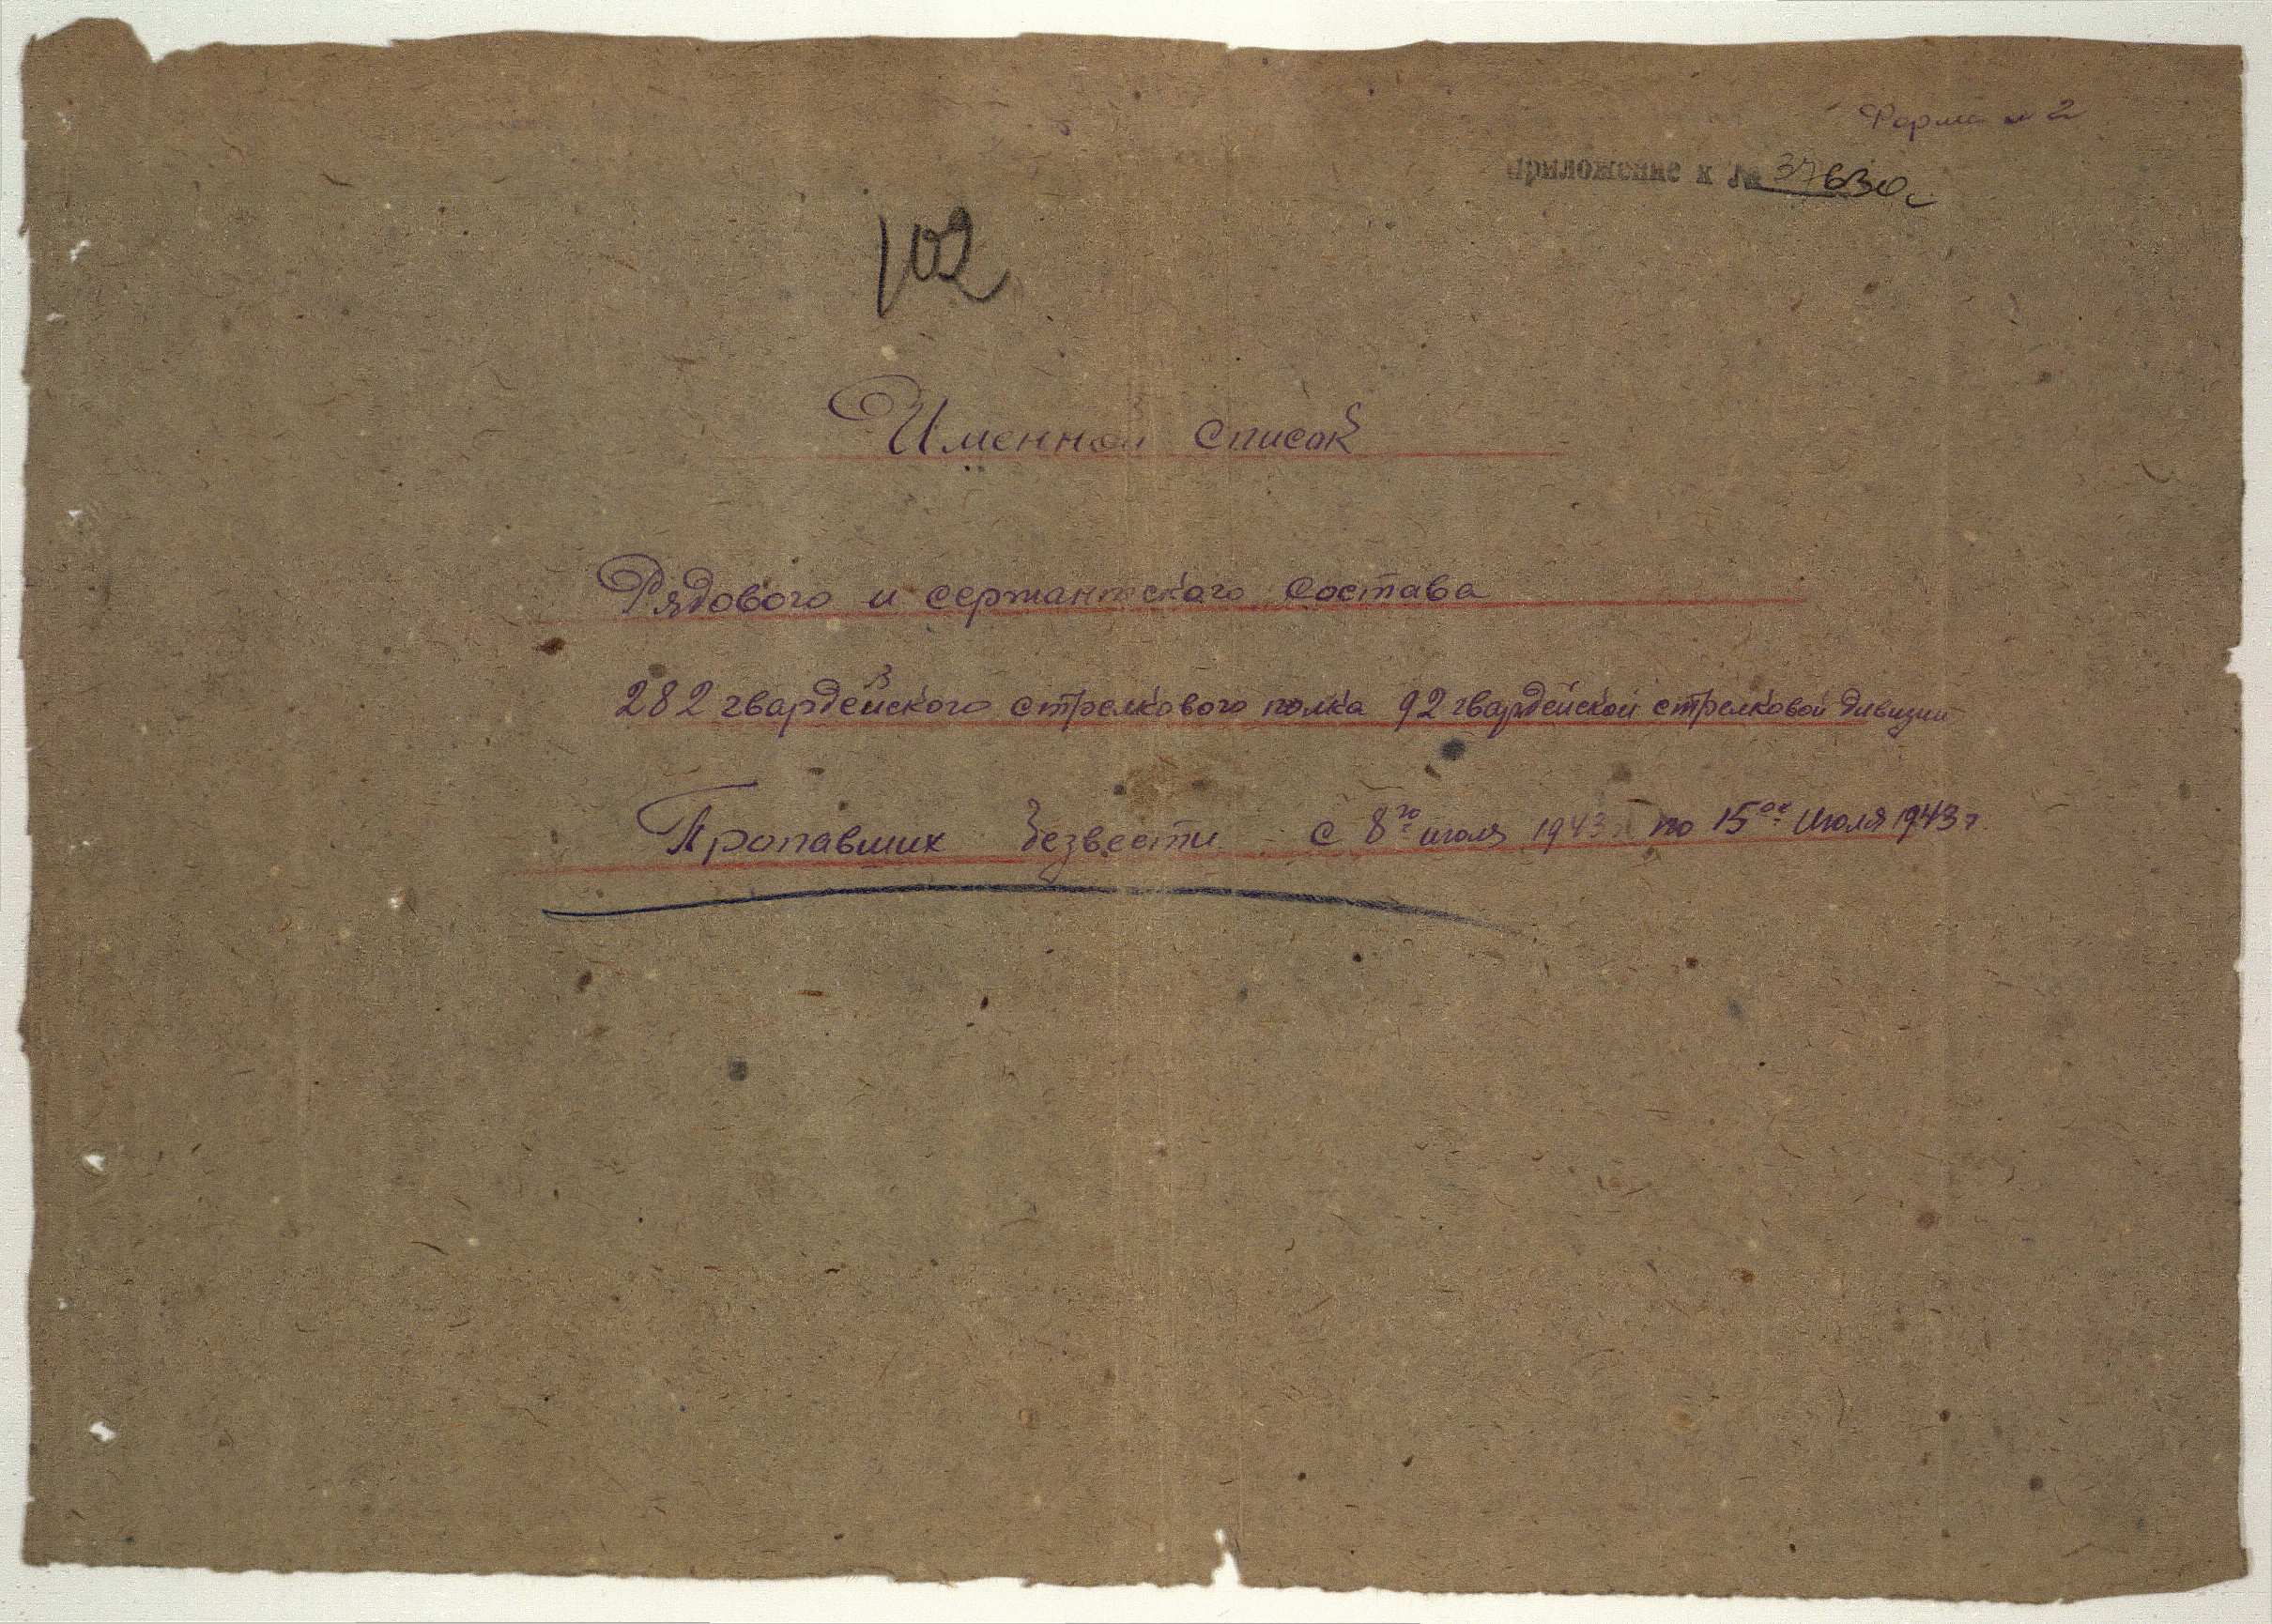 Форма № 2
Приложение к № 37630с
102
Именной список
Рядового и сержантского состава
282 гвардейского стрелкового полка 92 гвардейской стрелковой дивизии
Пропавших безвести с 8го июля 1943 по 15ое июля 1943 г.